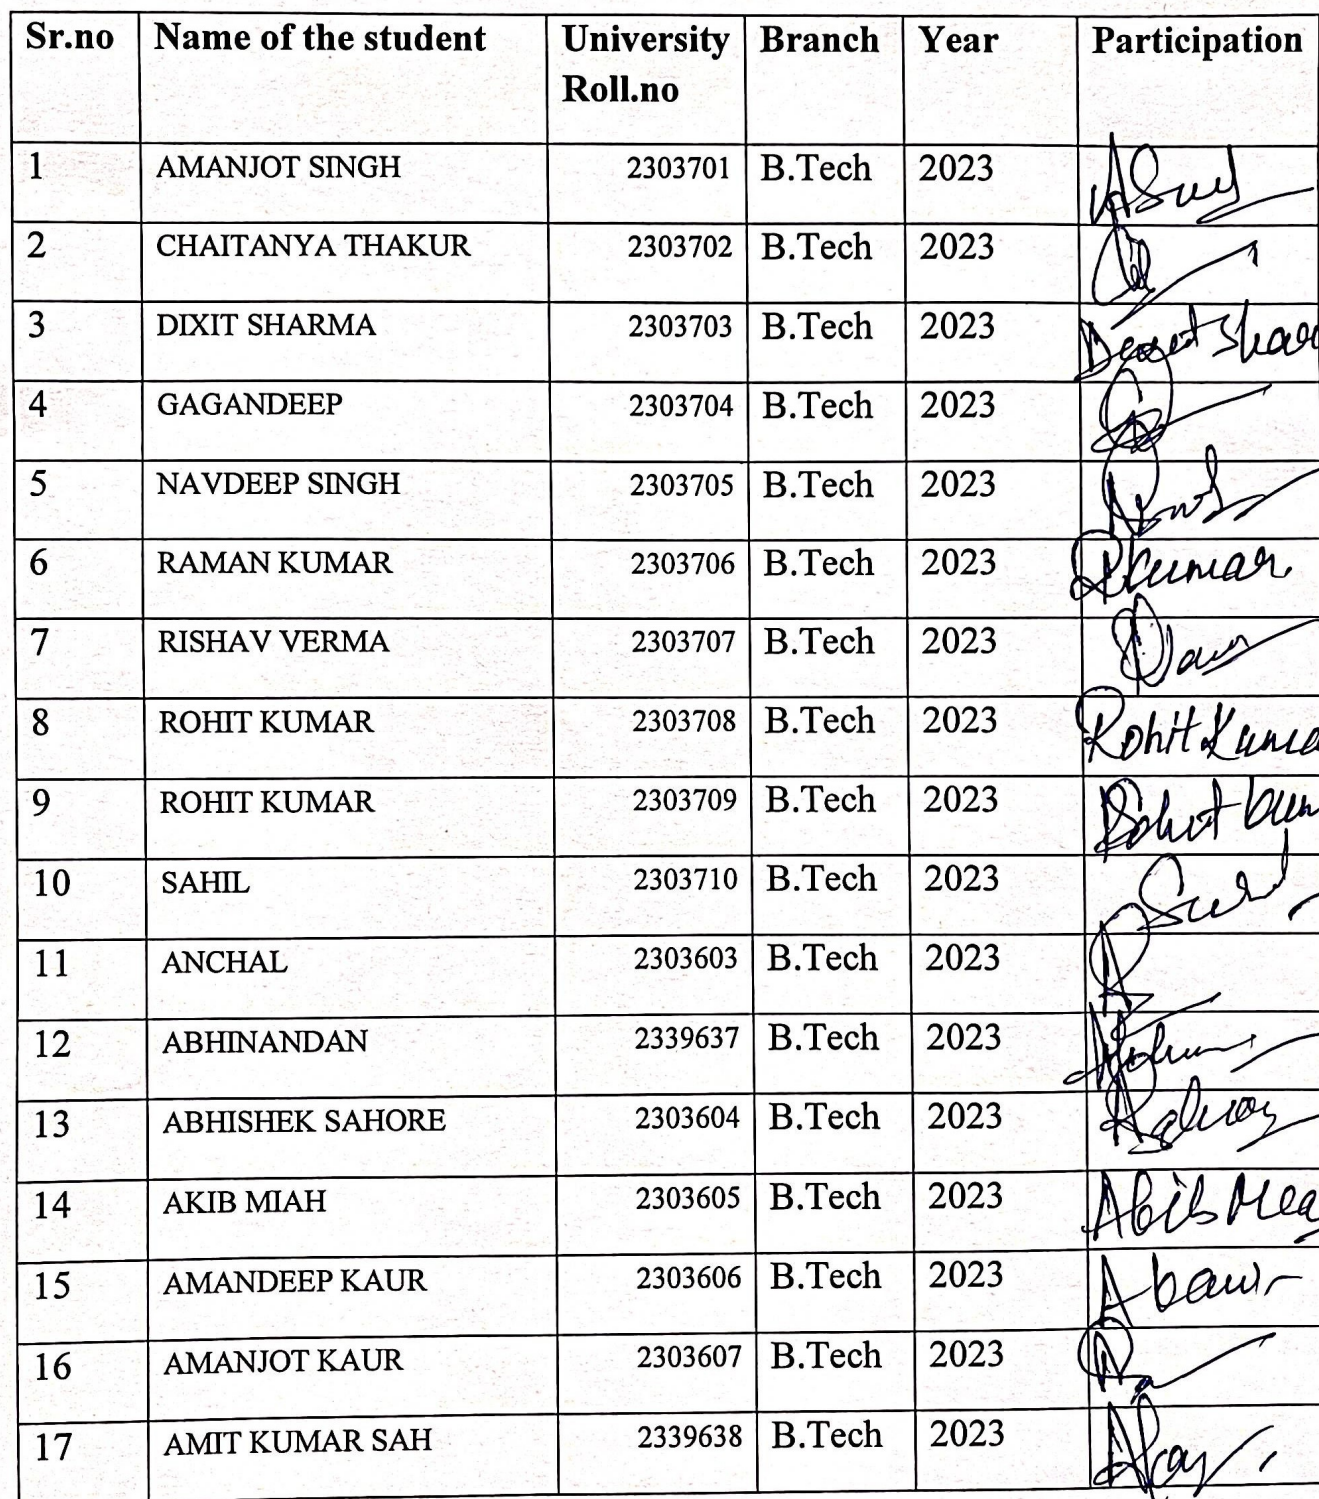 Sr.no Name of the student University Branch Year Participation
Roll.no
1 AMANJOT SINGH 2303701 B.Tech 2023
2 CHAITANYA THAKUR 2303702 B.Tech 2023
3 DIXIT SHARMA 2303703 B.Tech 2023
4 GAGANDEEP 2303704 B.Tech 2023
5 NAVDEEP SINGH 2303705 B.Tech 2023
6 RAMAN KUMAR 2303706 B.Tech 2023 RKumar
7 RISHAV VERMA 2303707 B.Tech 2023
8 ROHIT KUMAR 2303708 B.Tech 2023 Rohit Kuma
9 ROHIT KUMAR 2303709 B.Tech 2023
10 SAHIL 2303710 B.Tech 2023
11 ANCHAL 2303603 B.Tech 2023
12 ABHINANDAN 2339637 B.Tech 2023
13 ABHISHEK SAHORE 2303604 B.Tech 2023
14 AKIB MIAH 2303605 B.Tech 2023
15 AMANDEEP KAUR 2303606 B.Tech 2023
16 AMANJOT KAUR 2303607 B.Tech 2023
17 AMIT KUMAR SAH 2339638 B.Tech 2023